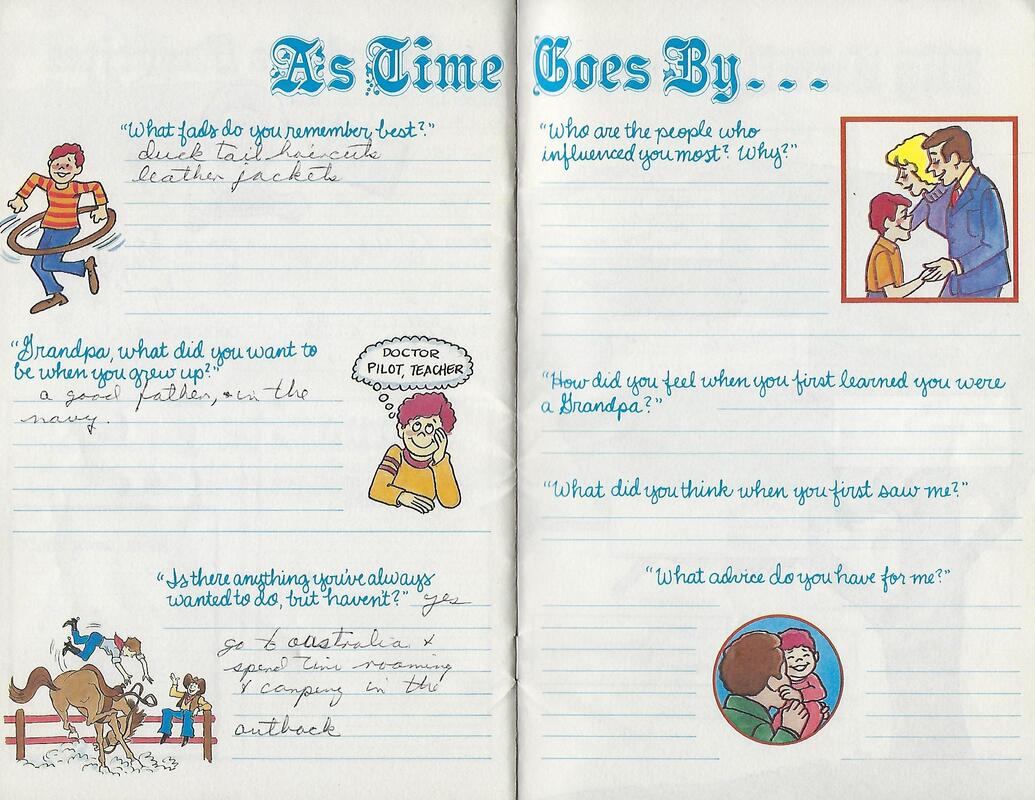 As Time Goes By...
"What fads do you remember best?"
duck tail haircuts
leather jackets
"Grandpa, what did you want to
be when you grew up?"
a good father, + in the
navy.
DOCTOR
PILOT, TEACHER
"Is there anything you've always
wanted to do, but haven't?" yes
go to australia +
spend time roaming
& camping in the
outback
"Who are the people who
influenced you most? Why?"
"How did you feel when you first learned you were
a Grandpa?"
"What did you think when you first saw me?"
"What advice do you have for me?"